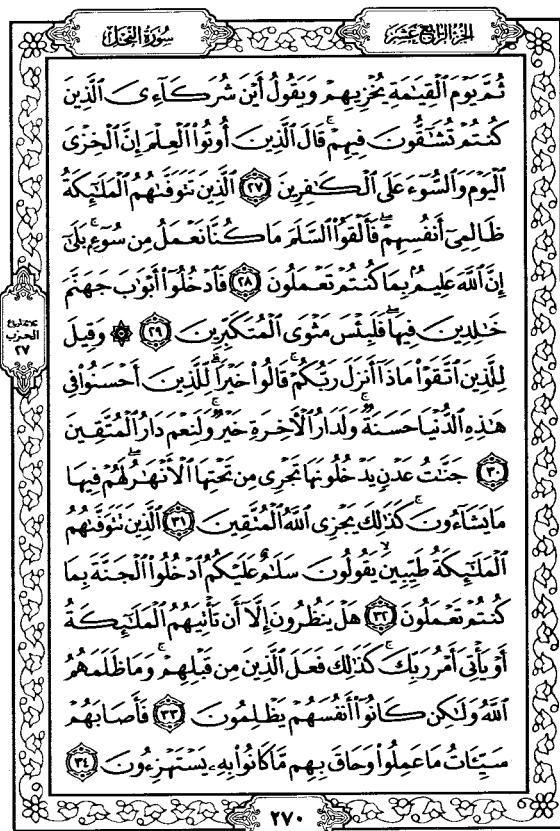 الجزء الرابع عشر
سورة النحل
ثُمَّ يَوْمَ ٱلْقِيَـٰمَةِ يُخْزِيهِمْ وَيَقُولُ أَيْنَ شُرَكَآءِىَ ٱلَّذِينَ
كُنتُمْ تُشَـٰٓقُّونَ فِيهِمْ ۚ قَالَ ٱلَّذِينَ أُوتُوا۟ ٱلْعِلْمَ إِنَّ ٱلْخِزْىَ
ٱلْيَوْمَ وَٱلسُّوٓءَ عَلَى ٱلْكَـٰفِرِينَ ٢٧ ٱلَّذِينَ تَتَوَفَّىٰهُمُ ٱلْمَلَـٰٓئِكَةُ
ظَالِمِىٓ أَنفُسِهِمْ ۖ فَأَلْقَوُا۟ ٱلسَّلَمَ مَا كُنَّا نَعْمَلُ مِن سُوٓءٍۭ ۚ بَلَىٰٓ
إِنَّ ٱللَّهَ عَلِيمٌۢ بِمَا كُنتُمْ تَعْمَلُونَ ٢٨ فَٱدْخُلُوٓا۟ أَبْوَٰبَ جَهَنَّمَ
خَـٰلِدِينَ فِيهَا ۖ فَلَبِئْسَ مَثْوَى ٱلْمُتَكَبِّرِينَ ٢٩ ۞ وَقِيلَ
لِلَّذِينَ ٱتَّقَوْا۟ مَاذَآ أَنزَلَ رَبُّكُمْ ۚ قَالُوا۟ خَيْرًا ۗ لِّلَّذِينَ أَحْسَنُوا۟ فِى
هَـٰذِهِ ٱلدُّنْيَا حَسَنَةٌ ۚ وَلَدَارُ ٱلْـَٔاخِرَةِ خَيْرٌ ۚ وَلَنِعْمَ دَارُ ٱلْمُتَّقِينَ
٣٠ جَنَّـٰتُ عَدْنٍ يَدْخُلُونَهَا تَجْرِى مِن تَحْتِهَا ٱلْأَنْهَـٰرُ ۖ لَهُمْ فِيهَا
مَا يَشَآءُونَ ۚ كَذَٰلِكَ يَجْزِى ٱللَّهُ ٱلْمُتَّقِينَ ٣١ ٱلَّذِينَ تَتَوَفَّىٰهُمُ
ٱلْمَلَـٰٓئِكَةُ طَيِّبِينَ ۙ يَقُولُونَ سَلَـٰمٌ عَلَيْكُمُ ٱدْخُلُوا۟ ٱلْجَنَّةَ بِمَا
كُنتُمْ تَعْمَلُونَ ٣٢ هَلْ يَنظُرُونَ إِلَّآ أَن تَأْتِيَهُمُ ٱلْمَلَـٰٓئِكَةُ
أَوْ يَأْتِىَ أَمْرُ رَبِّكَ ۚ كَذَٰلِكَ فَعَلَ ٱلَّذِينَ مِن قَبْلِهِمْ ۚ وَمَا ظَلَمَهُمُ
ٱللَّهُ وَلَـٰكِن كَانُوٓا۟ أَنفُسَهُمْ يَظْلِمُونَ ٣٣ فَأَصَابَهُمْ
سَيِّـَٔاتُ مَا عَمِلُوا۟ وَحَاقَ بِهِم مَّا كَانُوا۟ بِهِۦ يَسْتَهْزِءُونَ ٣٤
الحزب
٢٧
٢٧٠